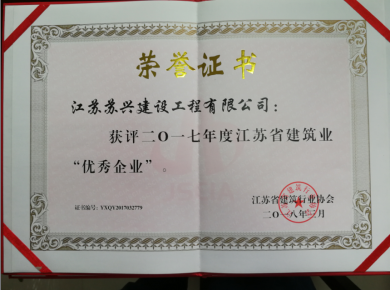 荣誉证书
江苏苏兴建设工程有限公司：
获评二〇一七年度江苏省建筑业
“优秀企业”。
江苏省建筑行业协会
证书编号：YXQY2017032779
二〇一八年 月